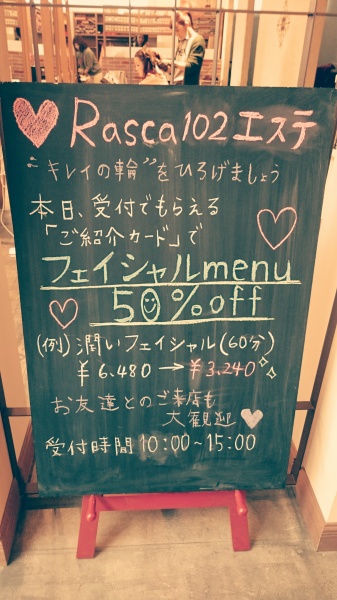 Rasca102エステ
"キレイの輪"をひろげましょう
本日、受付でもらえる
「ご紹介カード」で
フェイシャルmenu
50%off
(例)潤いフェイシャル(60分)
¥6,480→¥3,240
お友達とのご来店も
大歓迎
受付時間10:00~15:00